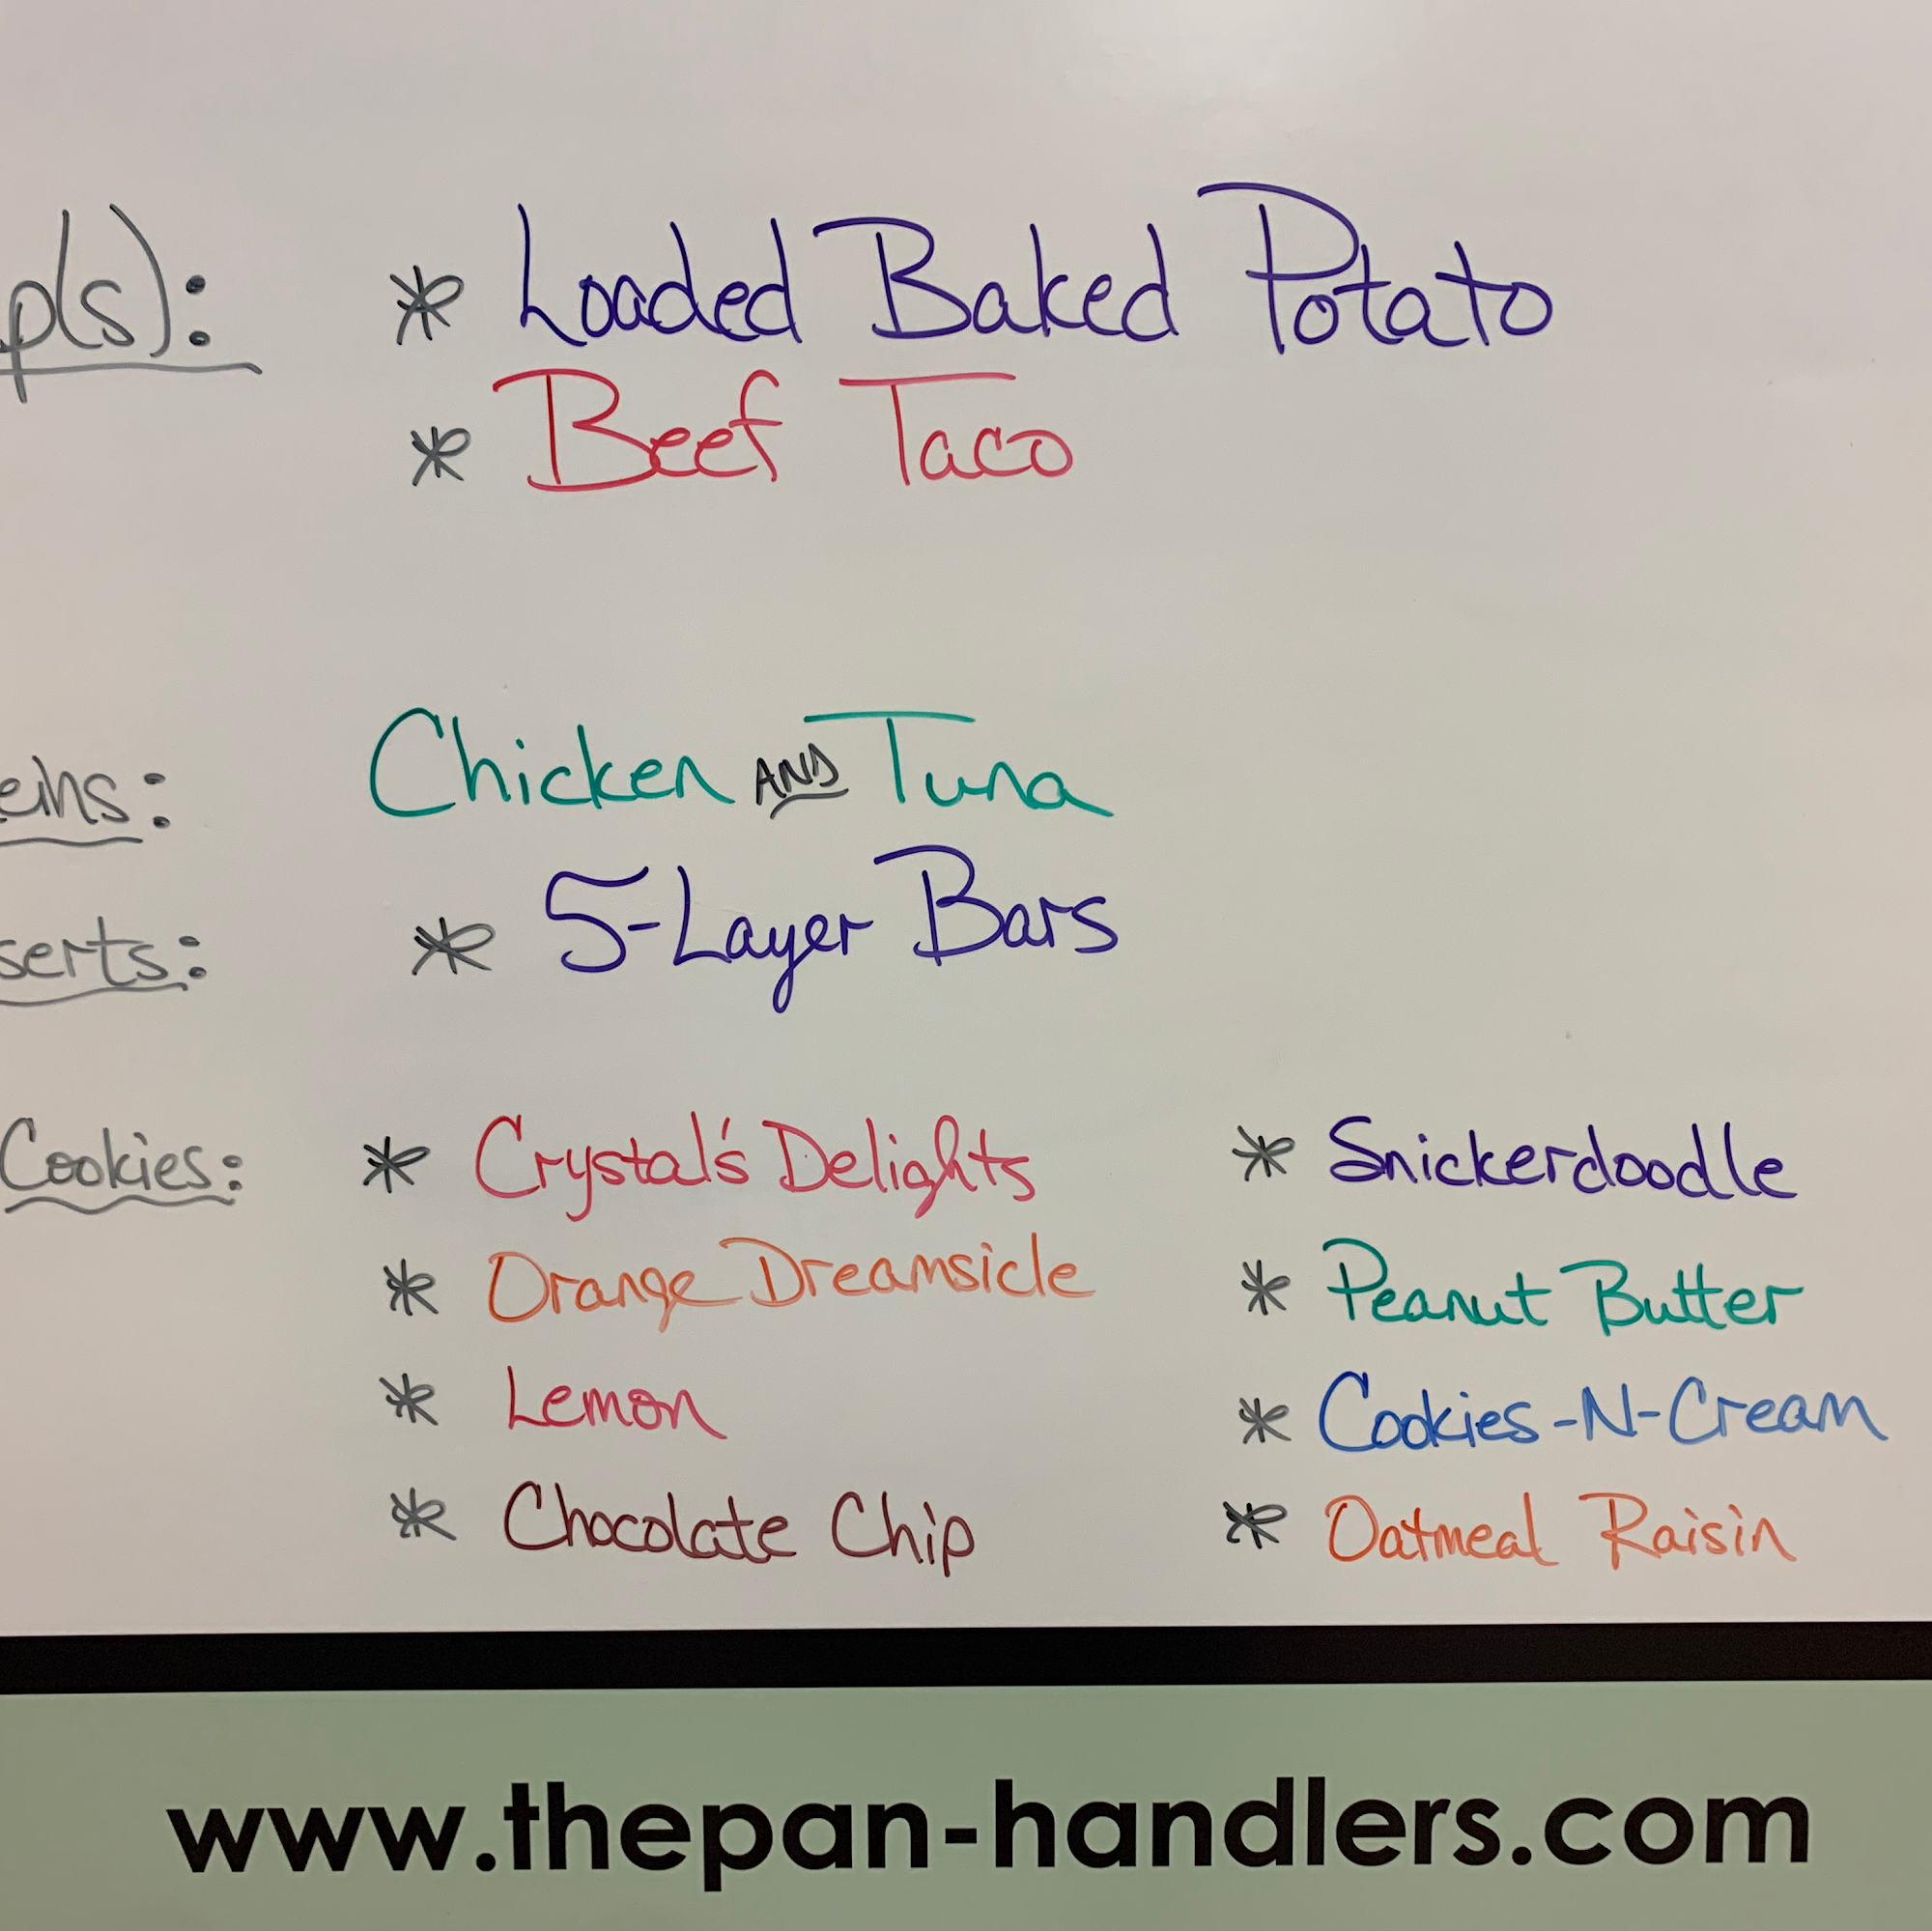 p(s): * Loaded Baked Potato
* Beef Taco
eins: Chicken AND Tuna
serts: * 5-Layer Bars
Cookies: * Crystal's Delights * Snickerdoodle
* Orange Dreamsicle * Peanut Butter
* Lemon * Cookies-N-Cream
* Chocolate Chip * Oatmeal Raisin
www.thepan-handlers.com